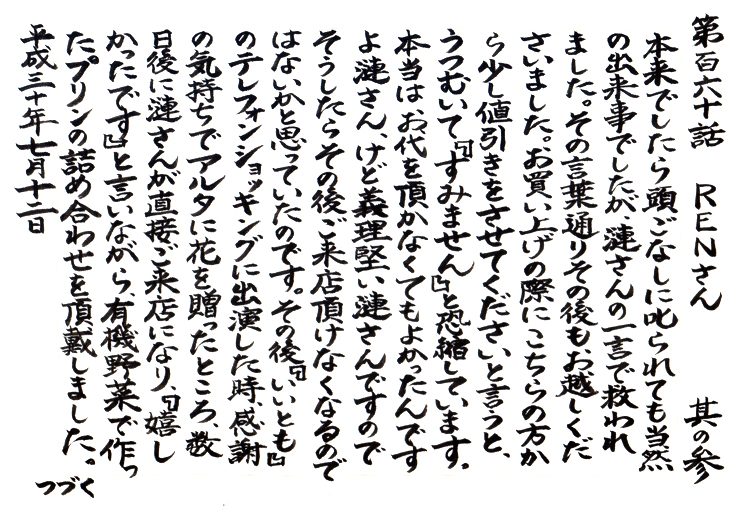 第百六十話　RENさん　其の参
本来でしたら頭ごなしに叱られても当然
の出来事でしたが、漣さんの一言で救われ
ました。その言葉通りその後も、お越しくだ
さいました。お買い上げの際にこちらの方か
ら少し値引きをさせてくださいと言うと、
うつむいて『すみません』と恐縮しています。
本当はお代を頂かなくてもよかったんです
よ漣さん、けど義理堅い漣さんですので
そうしたらその後、ご来店頂けなくなるので
はないかと思っていたのです。その後『いいとも』
のテレフォンショッキングに出演した時、感謝
の気持ちでアルタに花を贈ったところ、数
日後に漣さんが直接ご来店になり、『嬉し
かったです』と言いながら、有機野菜で作っ
た。プリンの詰め合わせを頂戴しました。
つづく
平成三十年七月十二日